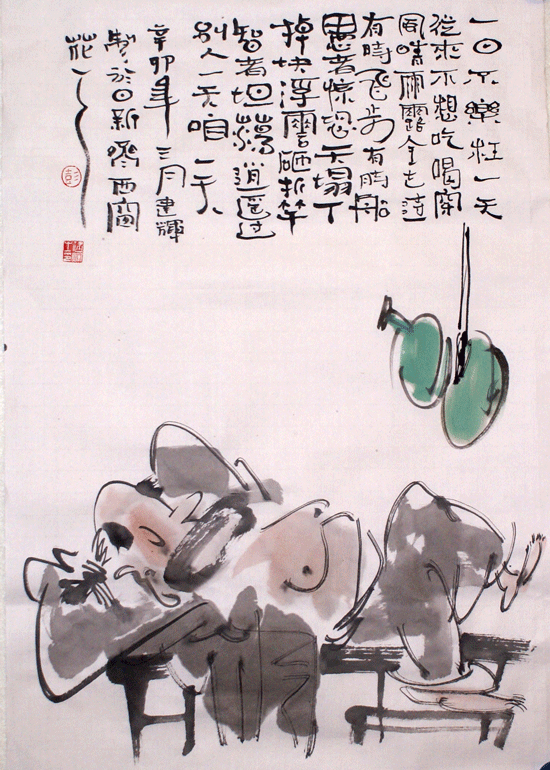 一日不樂枉一天
從來不想吃喝
風晴雨露
有時飛步有時船
愚者驚恐天塌下
掉块浮雲砸折竿
智者坦蕩逍遥过
别人一天咱一天
辛卯年三月建輝
製於日新齋西窗
彭